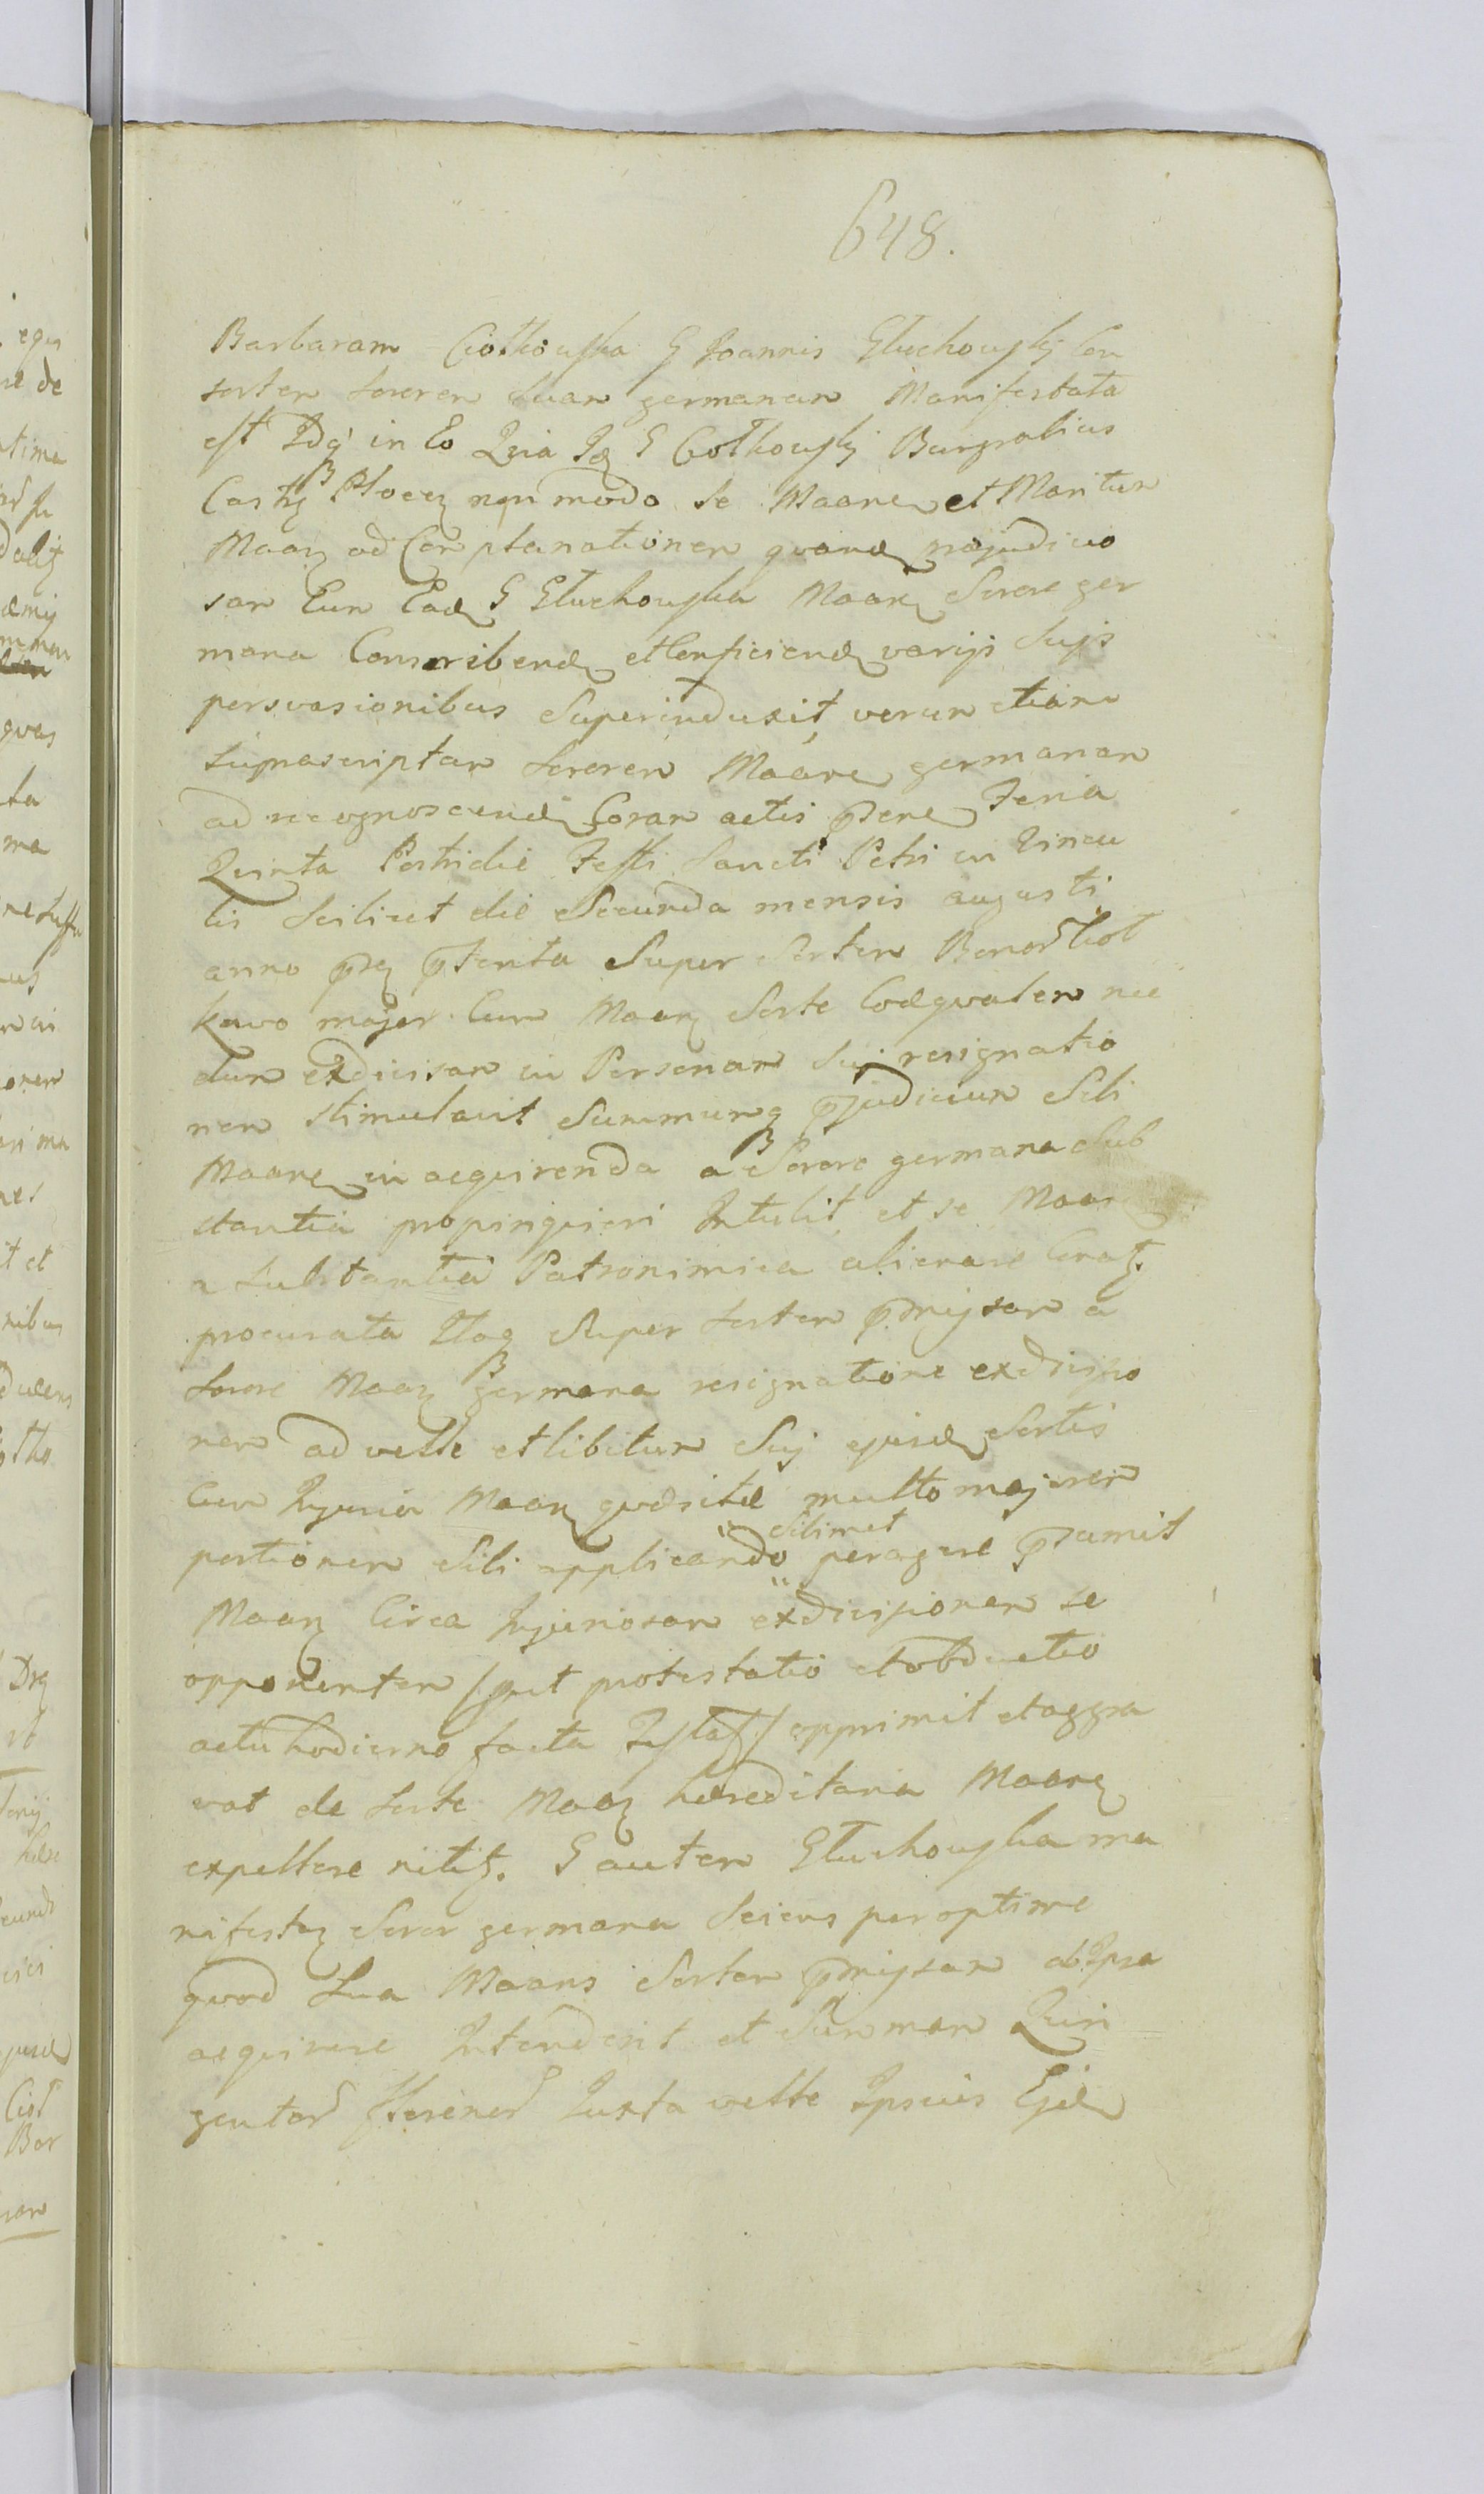 648.
Barbaram Ciołkowska G Joannis Głuchowskj Con
sorten Sororem Suam germanam Manifestata
est Idq in Eo Quia Idem G Ciołkowskj Burgrabius
Castr Plocen non modo se Maane et Maritum
Maan ad Complanationem quandam præjudicio
sam Cum Eadem G Głuchowska Maan Sorore ger
mana Conscribend et Conficiend varijs Sujs
persvasionibus Superinduxit, verum etiam
suprascriptam Sororem Maane germanam
ad recognoscend Coram actis psent Feria
Quinta Postridie Festi Sancti Petri in Vincu
lis Scilicet die Secunda mensis augusti
anno pnti ptenta Super Sortem Bonor Cioł
kowo major Cum Maan Sorte Coæqualem nec
dum exdivisam in Personam Suj resignatio
nem stimulavit Summumq pjudicium Sibi
Maane in acquirenda a Sorore germana Sub
stantia propinquiori Intulit et se Maan
a Substantia Patronimica alienare Conat.
procurata Itaq Super Sortem pmissam a
Sorore Maan germana resignatione exdivisio
nem ad velle et libitum Suj ejusd Sortis
Cum Injuria Maan quæsitæ multo majorem
portionem Sibi applicando Sibimet peragere psumit
Maan Circa Injuriosam exdivisionem se
opponentem /put protestatio et obductio
actu hodierno facta Testat/ opprimit et aggra
vat de Sorte Maan hæreditaria Maane
expellere nitit. G autem Głuchowska ma
nifestan Soror germana Sciens peroptime
quod Sua Maans Sortem pmissam ab Ipsa
acquirere Intenderit et Summam Quin
gentor fflorenor Juxta velle Ipsius Ejd